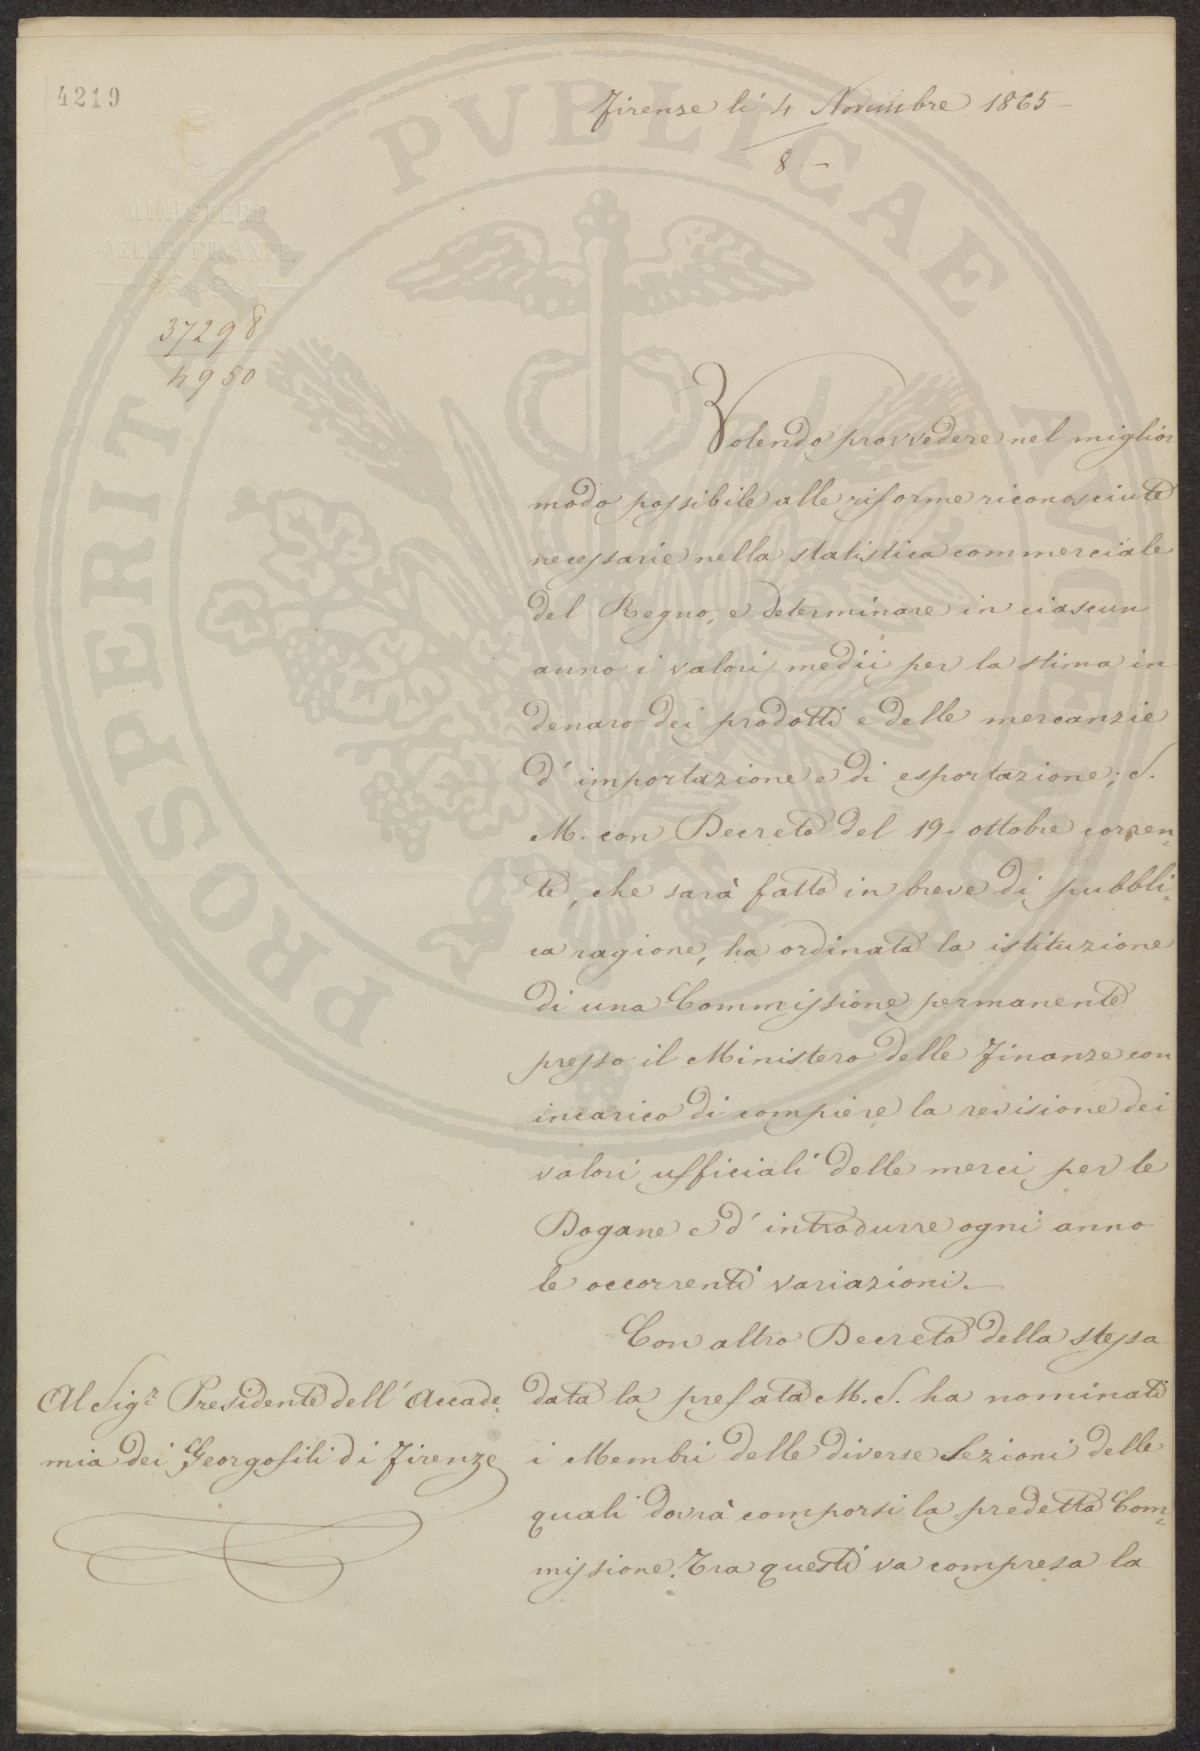 4219
Firenze li 4 Novembre 1865 -
8 -
MINISTERO
DELLE FINANZE
37298
4950
Volendo provvedere nel miglior
modo possibile alle riforme riconosciute
necessarie nella statistica commerciale
del Regno, e determinare in ciascun
anno i valori medii per la stima in
denaro dei prodotti e delle mercanzie
d' importazione e di esportazione; S.
M. con Decreto del 19 - ottobre corren=
te, che sarà fatto in breve di pubbli=
ca ragione, ha ordinata la istituzione
di una Commissione permanente
presso il Ministero delle Finanze con
incarico di compiere la revisione dei
valori ufficiali delle merci per le
Dogane e d' introdurre ogni anno
le occorrenti variazioni. —
Con altro Decreto della stessa
data la prefata M. S. ha nominati
i Membri delle diverse Sezioni delle
quali dovrà comporsi la predetta Com=
missione. Tra questi va compresa la
Al Sigr Presidente dell' Accade=
mia dei Georgofili di Firenze
PROSPERITATI PVBLICAE AVGENDAE